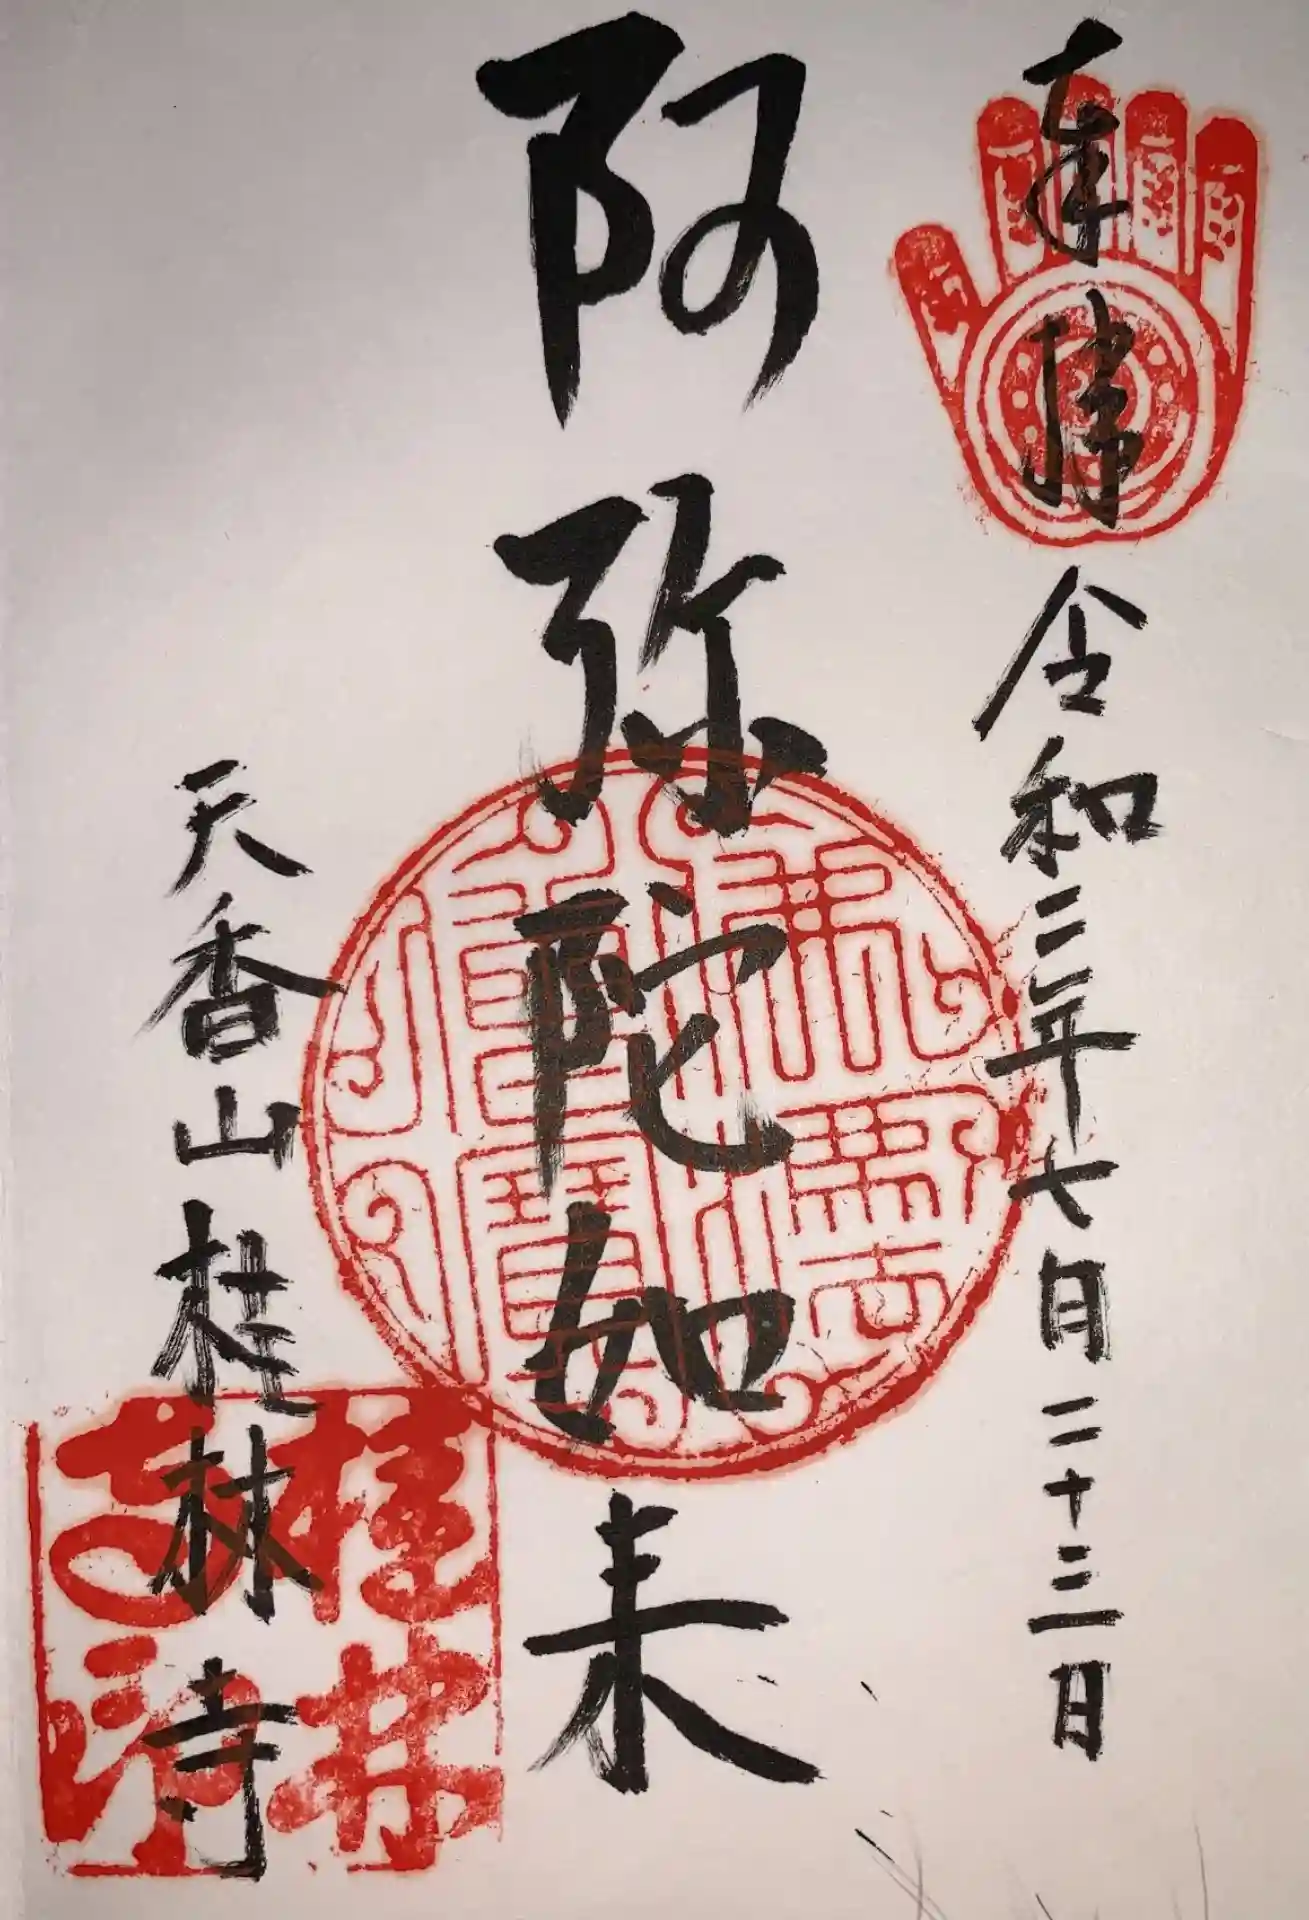 奉拝
令和三年七月二十三日
阿弥陀如来
天香山桂林寺